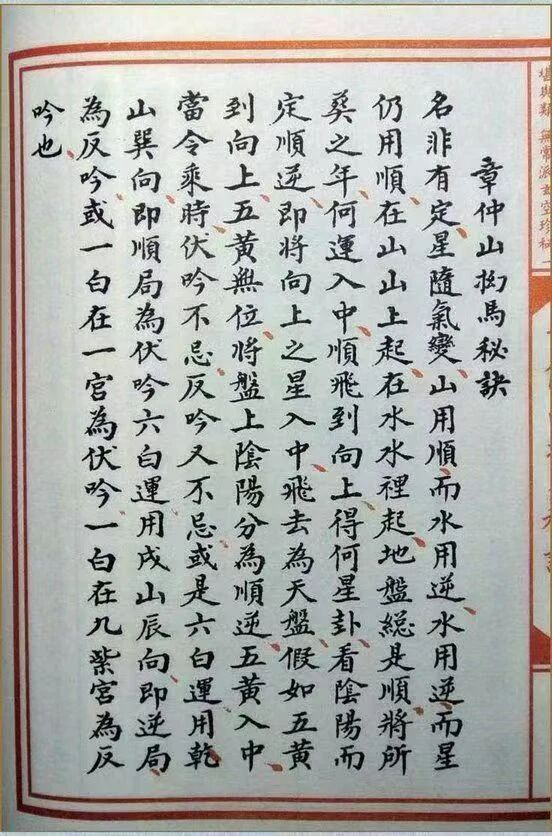 章仲山挨星秘訣
名非有定星隨氣變山用順而水用逆水用逆而星
仍用順在山山上起在水水裡起地盤總是順將所
葵之年何運入中順飛到向上得何星卦看陰陽而
定順逆即將向上之星入中飛去為天盤假如五黃
到向上五黃無位將盤上陰陽分為順逆五黃入中
當令乘時伏吟不忌反吟又不忌或是六白運用乾
山巽向即順局為伏吟六白運用戌山辰向即逆局
為反吟或一白在一宮為伏吟一白在九紫宮為反
吟也
堪輿類 無常派玄空珍秘